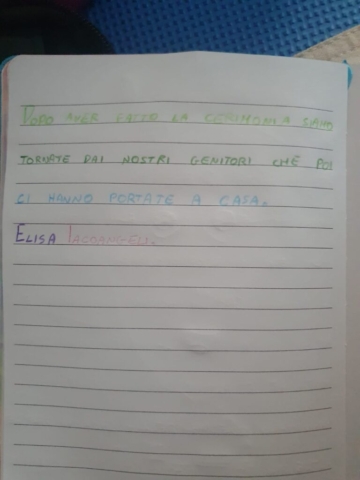 DOPO AVER FATTO LA CERIMONIA SIAMO
TORNATE DAI NOSTRI GENITORI CHE POI
CI HANNO PORTATE A CASA.
ELISA